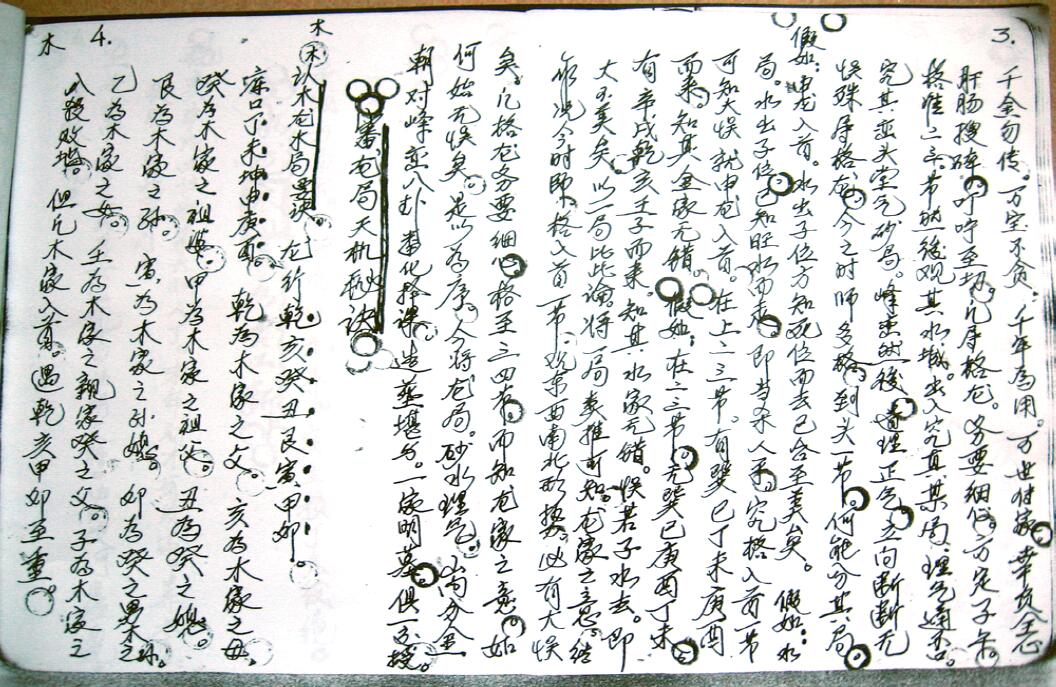 3.
千金勿传。万宝不贪。千年为用。万世付家。幸
肝肠搜碎。叮咛至切。凡辱格龙。务要细
格准二三节。然后观其水城。出入究真其局。理气
究其峦头堂气砂局。峰峦然后 理正气立向断断无
误殊辱格在今之时师多格到头一节。何能分其局
假如：申龙入首。水出子位方知死位而去已合至美矣。假如：水
局。水出子位已知旺水而走。即当杀人矣。究格入首一节
可知大误就申龙入首。在上二三节。有巽巳丁未庚酉
而来。知其金家无错。假如：在二三节无巽巳庚酉丁未
有辛戌乾亥壬子而来。知其水家无错。误若子水去。即
大不美矣。以一局比此论将一局类推可知。龙家之意。
况今时师格入首一节。观东西南北形势。必有大误
矣。凡格龙务要细心格至三四节而知龙家之意。如
何始无误矣。是以为序。今将龙局。砂水理气山向分金
朝对峰峦八卦 化择课 造葬堪舆。一家明墓俱一
番龙局天机秘诀
木
木
认木龙水局要诀 龙行乾亥癸丑艮寅甲卯
库口丁未坤申庚酉。乾为木家之父 亥为木家之母
癸为木家之祖婆 甲为木家之祖父 丑为癸之媳
艮为木家之孙 寅为木家之孙媳。卯为癸之男木之孙
乙为木家之女。壬为木家之亲家癸之父 子为木家之
入败败格 但凡木家入首。遇乾亥甲卯至重。
4.
木